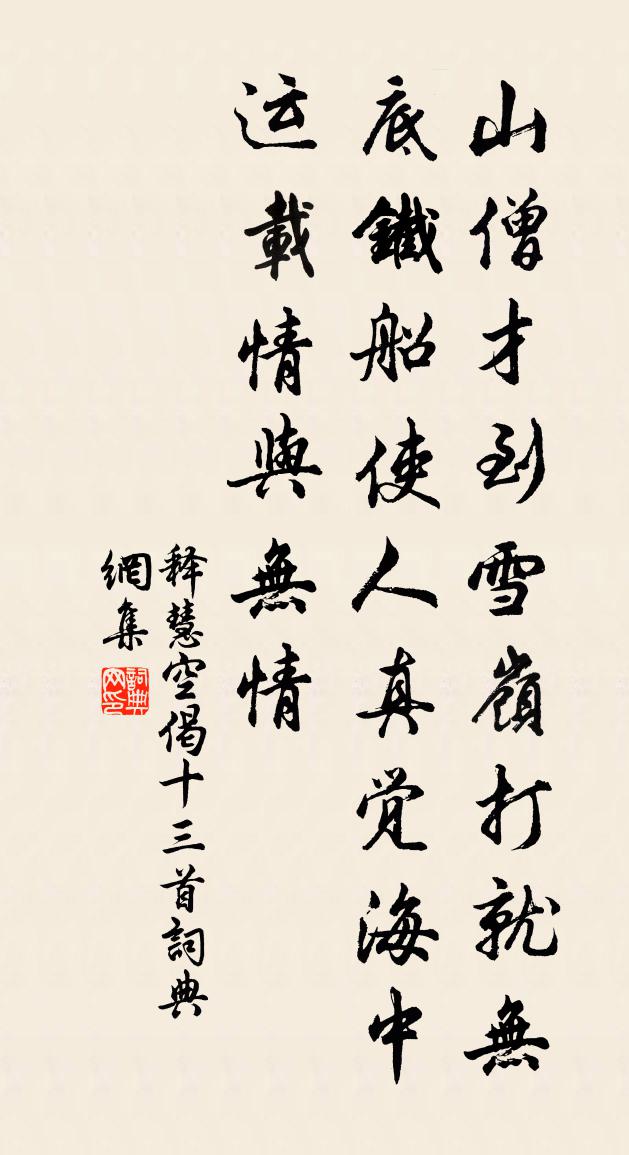 山僧才到雪嶺打就無
底鐵船使人真觉海中
运載情與無情
释慧空偈十三首詞典
網集
詞典网印